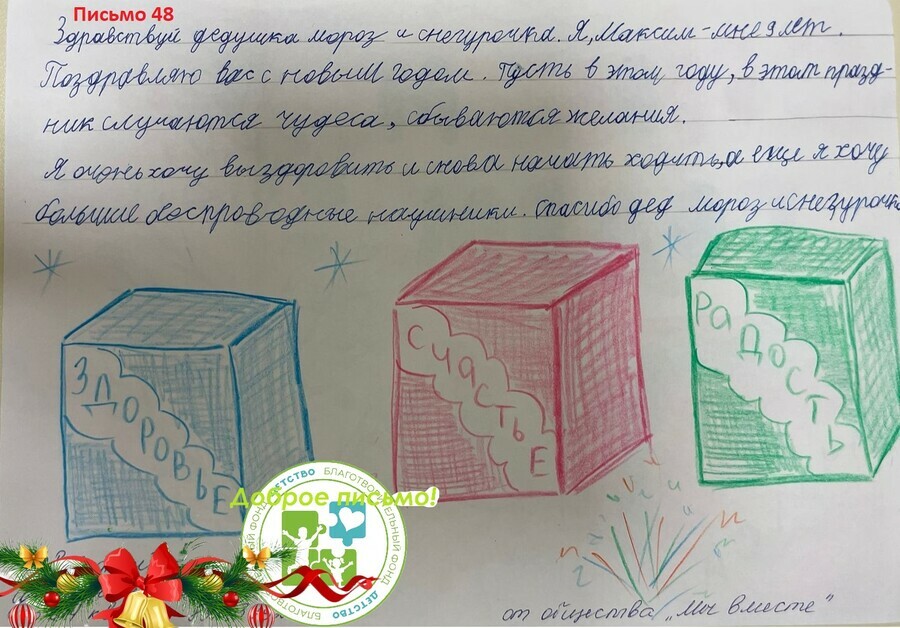 Письмо 48
Здравствуй дедушка мороз и снегурочка. Я, Максим-мне 9 лет.
Поздравляю вас с новым годом. Пусть в этом году, в этом празд-
ник случаются чудеса, сбываются желания.
Я очень хочу выздоровить и снова начать ходить, а еще я хочу
большие беспроводные наушники. Спасибо дед мороз и снегурочка
ЗДОРОВЬЕ
СЧАСТЬЕ
РАДОСТЬ
Доброе письмо!
БЛАГОТВОРИТЕЛЬНЫЙ ФОНД ДЕТСТВО
от общества „Мы вместе"